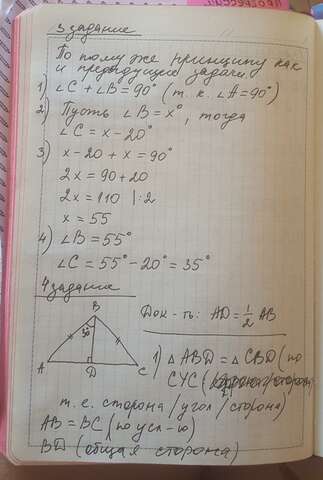 3 задание
По тому же принципу как
и предыдущие задачи
1) ∠C + ∠B = 90° (т. к. ∠A = 90°)
2) Пусть ∠B = x°, тогда
∠C = x - 20°
3) x - 20 + x = 90°
2x = 90 + 20
2x = 110 | : 2
x = 55
4) ∠B = 55°
∠C = 55° - 20° = 35°
4 задание
B
30°
A
D
C
Док-ть: AD = 1/2 AB
1) △ ABD = △ CBD (по
СУС (
т. е. сторона / угол / сторона)
AB = BC (по усл-ю)
BD (общая сторона)